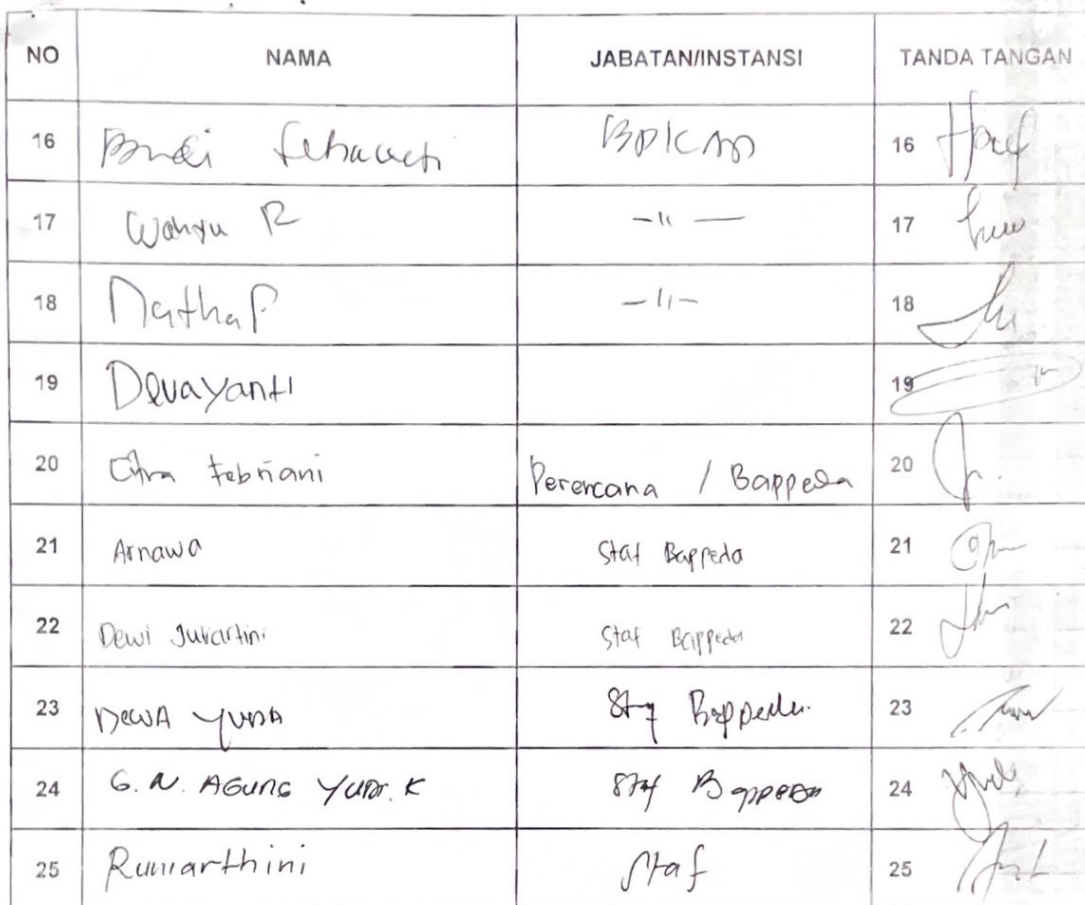 NO NAMA JABATAN/INSTANSI TANDA TANGAN
16 BPKAD 16
17 Wahyu R -〃- 17
18 Natha P -〃- 18
19 Devayanti 19
20 Citra Febriani Perencana / Bappeda 20
21 Arnawa Staf Bappeda 21
22 Dewi Juliartini Staf Bappeda 22
23 DEWA YUDA Staf Bappeda 23
24 G. N. AGUNG YUDA. K Staf Bappeda 24
25 Rumarthini Staf 25